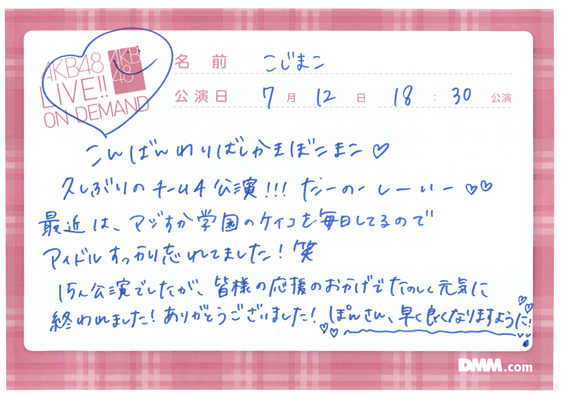 AKB48
LIVE!!
ON DEMAND
AKB
48
名前 こじまこ
公演日 7月12日 18:30公演
こんばんわりばしかまぼこまこ♡
久しぶりのチーム4公演!!! たーのーしーいー♡♡
最近は、マジすか学園のケイコを毎日してるので
アイドルすっかり忘れてました!笑
15人公演でしたが、皆様の応援のおかげでたのしく元気に
終われました!ありがとうございました! ぽんさん、早く良くなりますように!
DMM.com